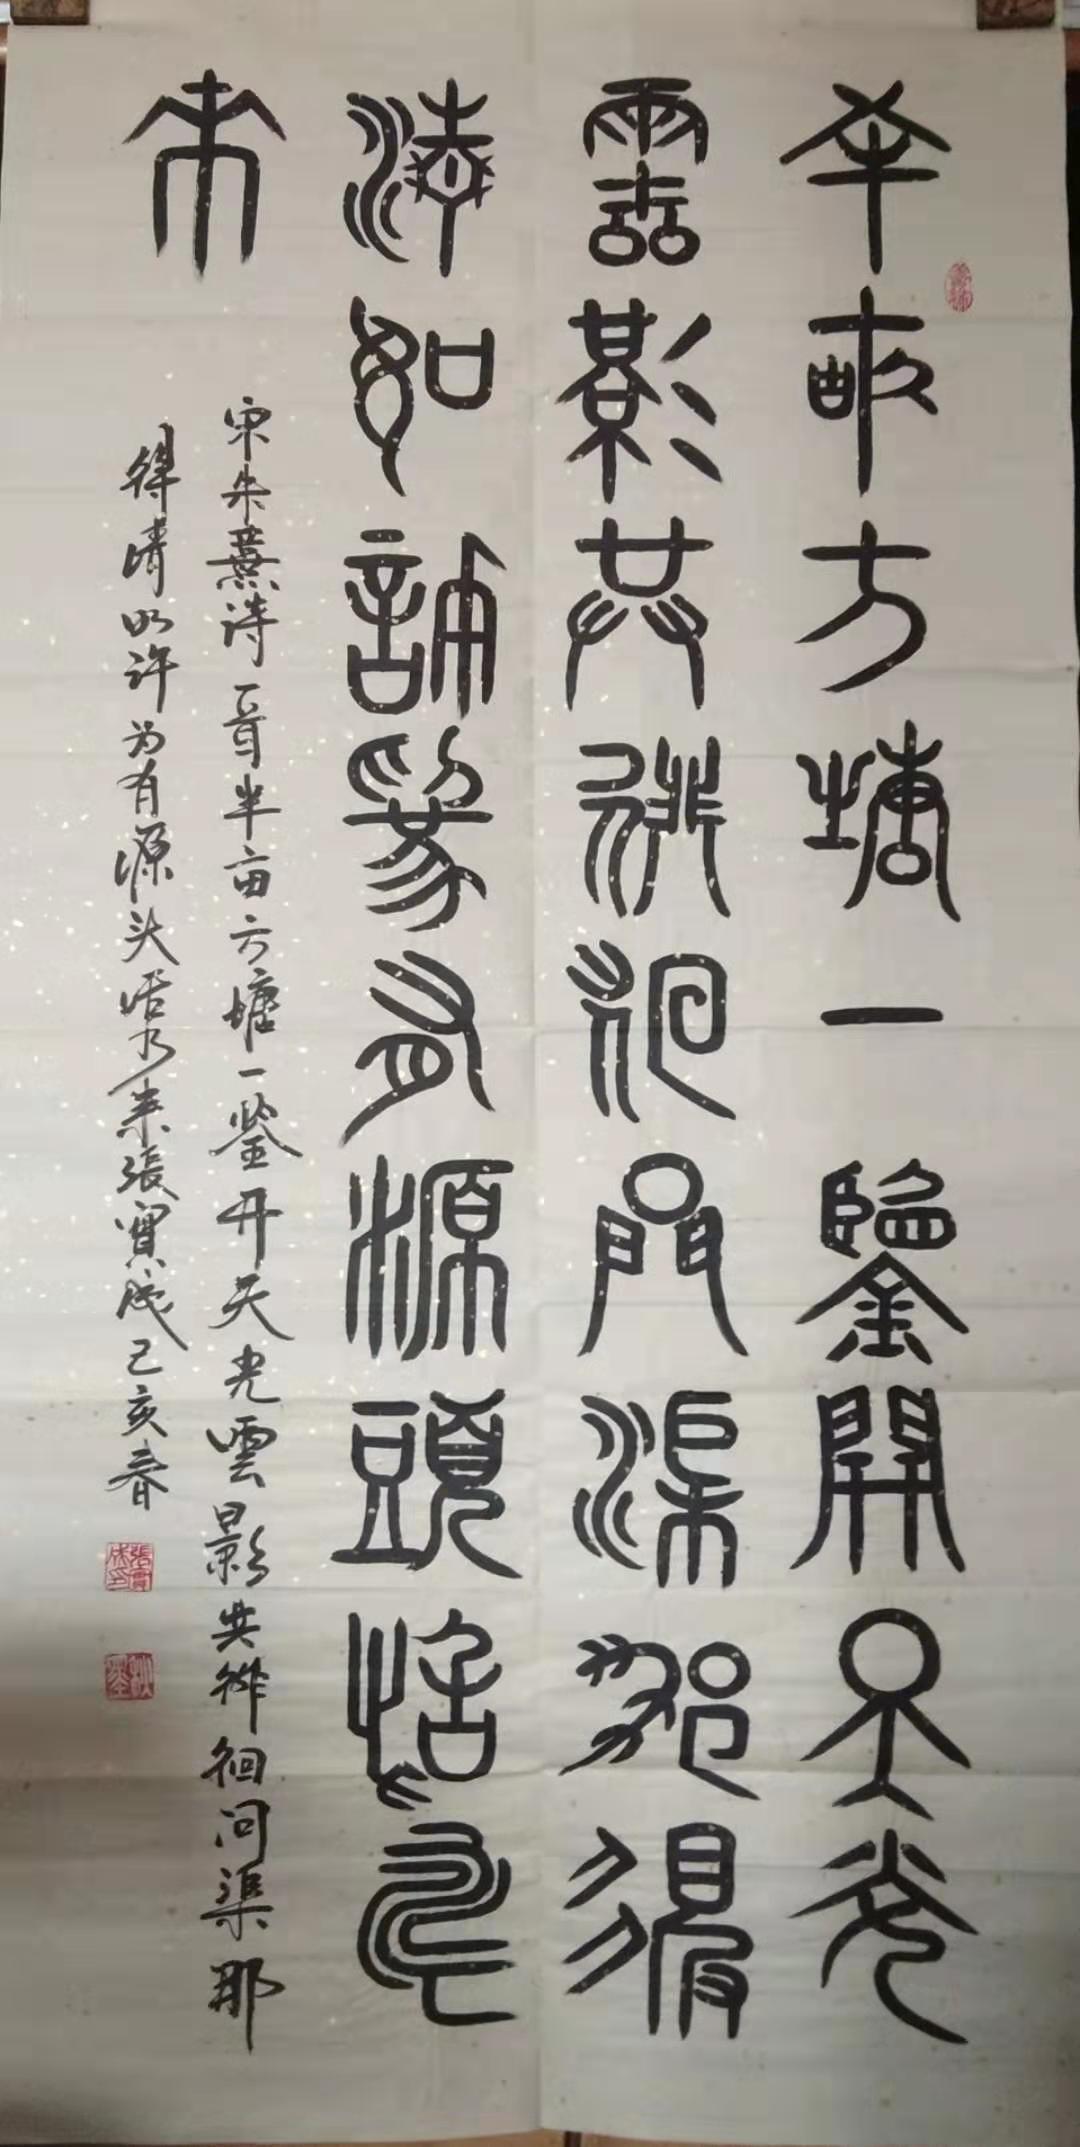 半畝方塘一鑒開天光
雲影共徘徊問渠那得
清如許為有源頭活水
來
宋朱熹诗一首半亩方塘一鉴开天光雲影共徘徊问渠那
得清如许为有源头活水来張寶成己亥春